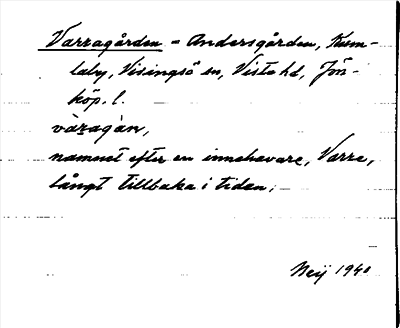 Varragården = Andersgården, Kum-
laby, Visingsö sn, Vista hd, Jön-
köp. l.
vàragàn,
namnet efter en innehavare, Varre,
långt tillbaka i tiden,
Neij 1940